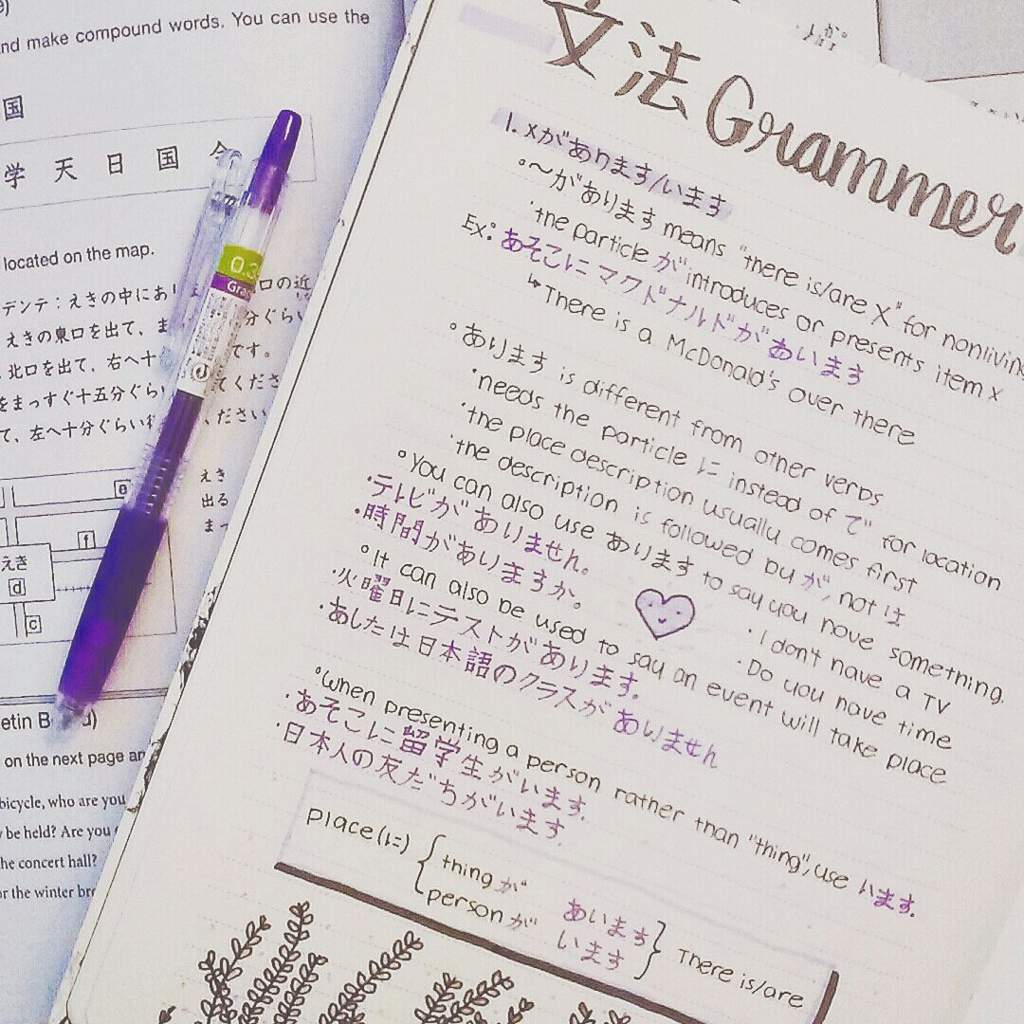 nd make compound words. You can use the
国
学 天 日 国 今
located on the map.
デンテ：えきの中にあ
口の近
えきの東口を出て、ま
分ぐらい
北口を出て、右へ十
です。
をまっすぐ十五分ぐら
てくださ
て、左へ十分ぐらい行
ください
えき
出る
まっ
えき
d
f
c
etin B
d)
on the next page an
bicycle, who are you
be held? Are you
he concert hall?
or the winter br
0.3
Gra
文法 Grammer
1. Xがあります/います
〜があります means "there is/are X" for nonliving
・the particle が introduces or presents item x
Ex: あそこにマクドナルドがあいます
↳There is a McDonald's over there
あります is different from other verbs
・needs the particle に instead of で for location
・the place description usually comes first
・the description is followed by が, not は
You can also use あります to say you have something.
・テレビがありません。 ・I don't have a TV
・時間がありますか。 ・Do you have time
It can also be used to say an event will take place
・火曜日にテストがあります.
・あしたは日本語のクラスがあいません
When presenting a person rather than "thing", use います.
・あそこに留学生がいます.
・日本人の友だちがいます.
place(に) { thingが あいます } There is/are
personが います